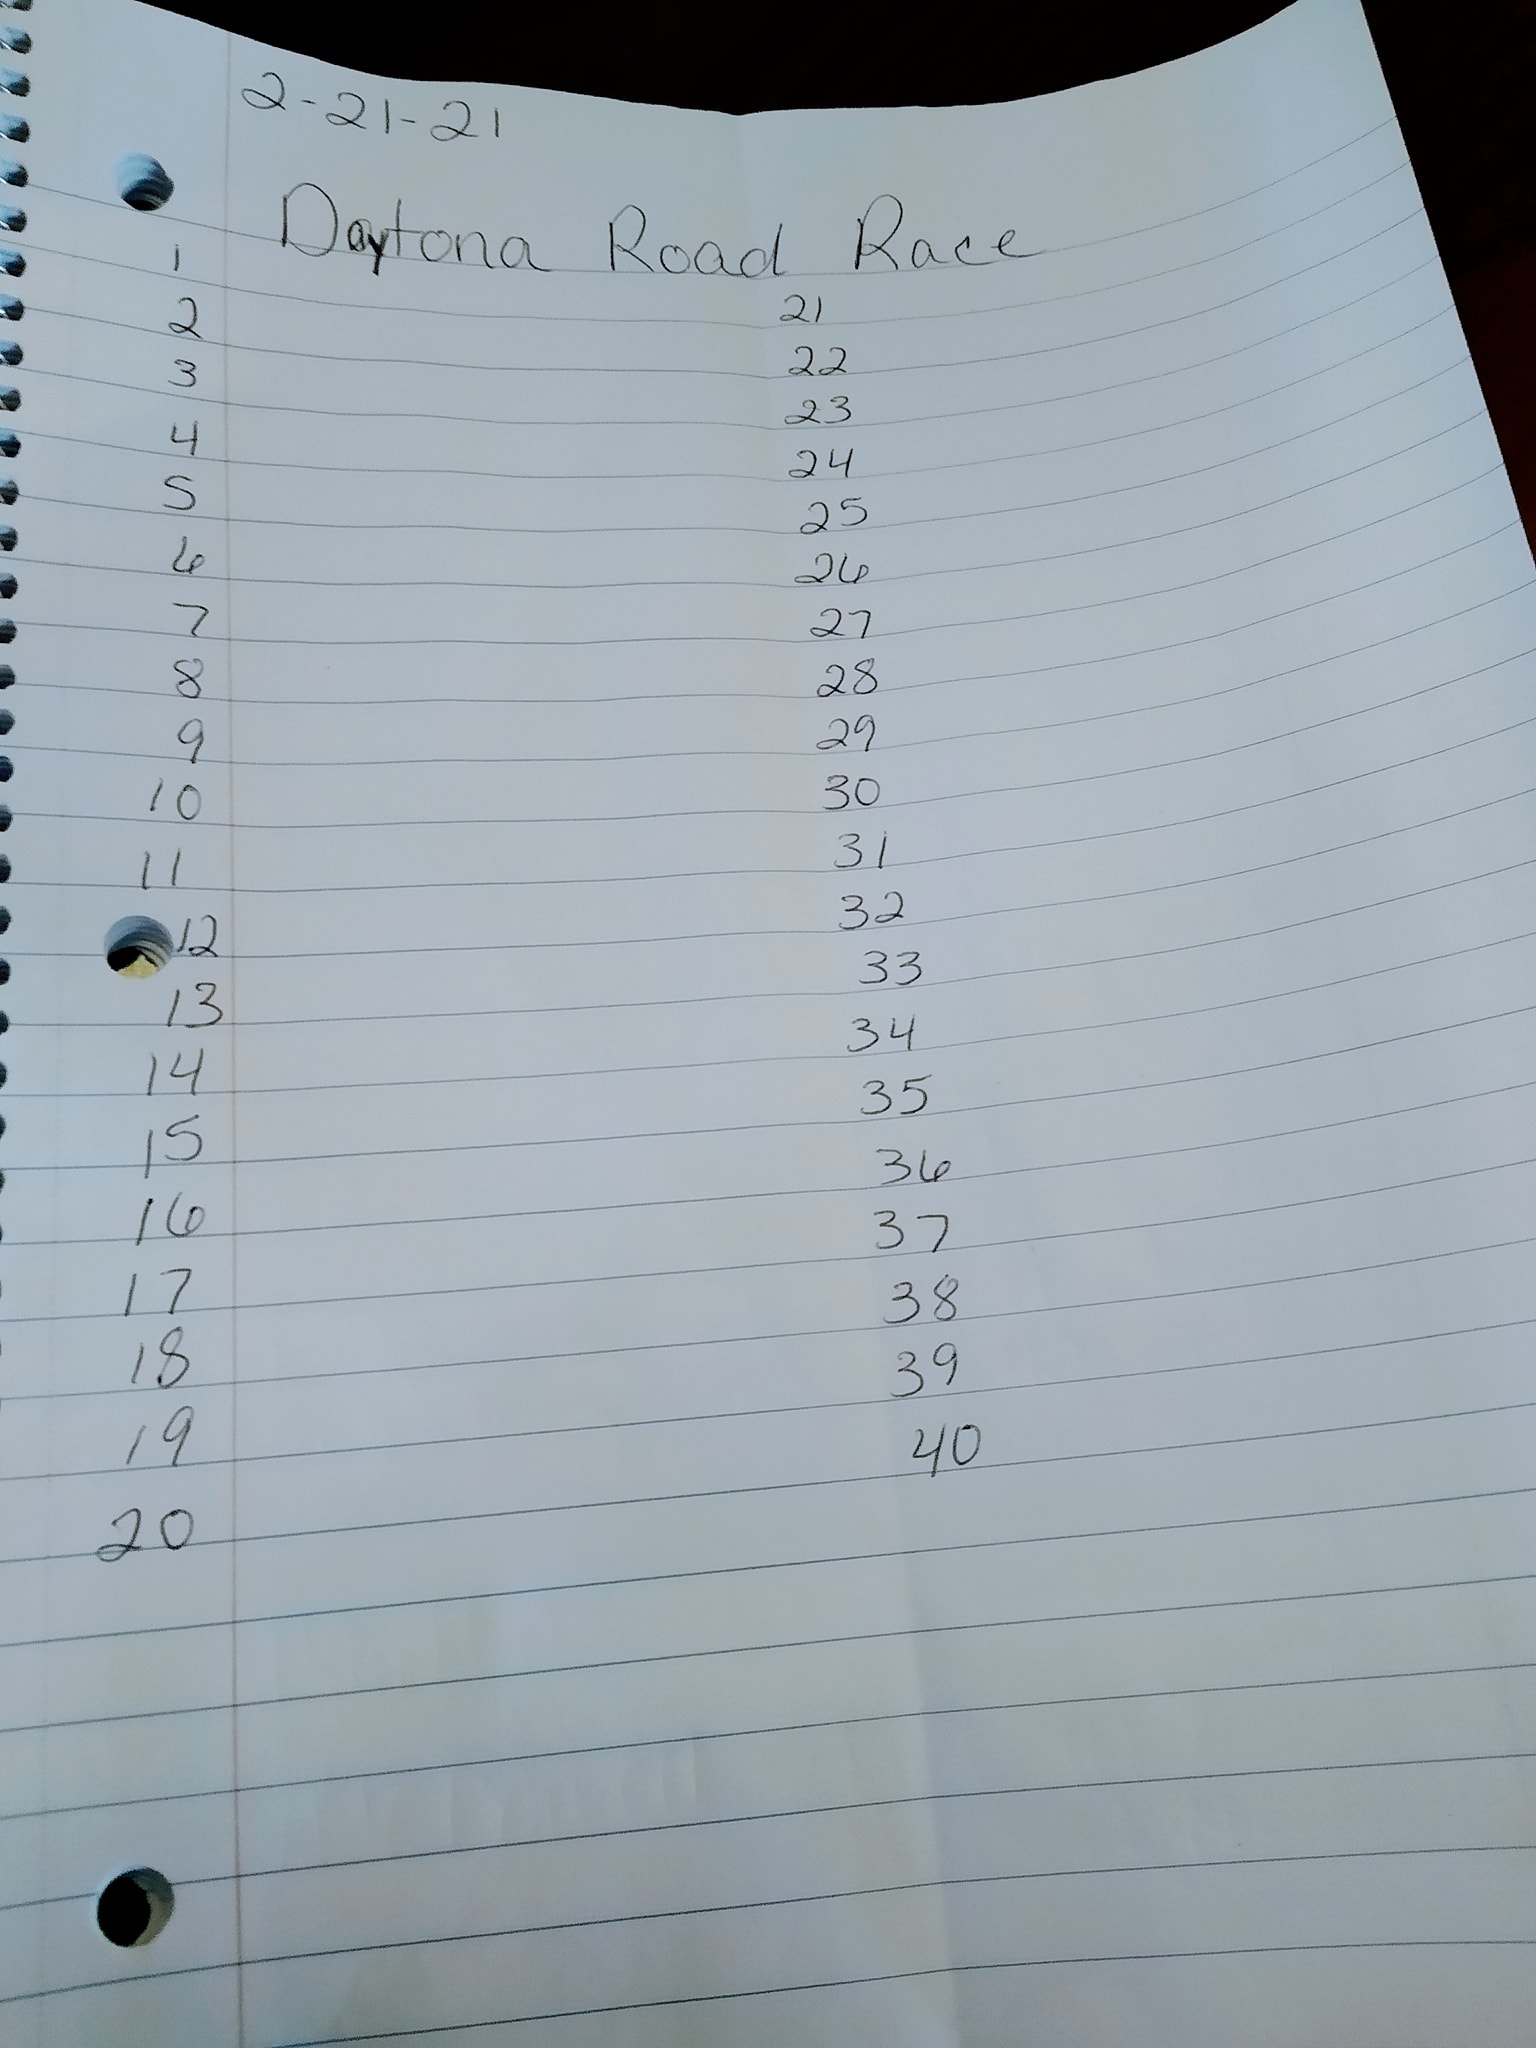 2-21-21
Daytona Road Race
1
2
3
4
5
6
7
8
9
10
11
12
13
14
15
16
17
18
19
20
21
22
23
24
25
26
27
28
29
30
31
32
33
34
35
36
37
38
39
40